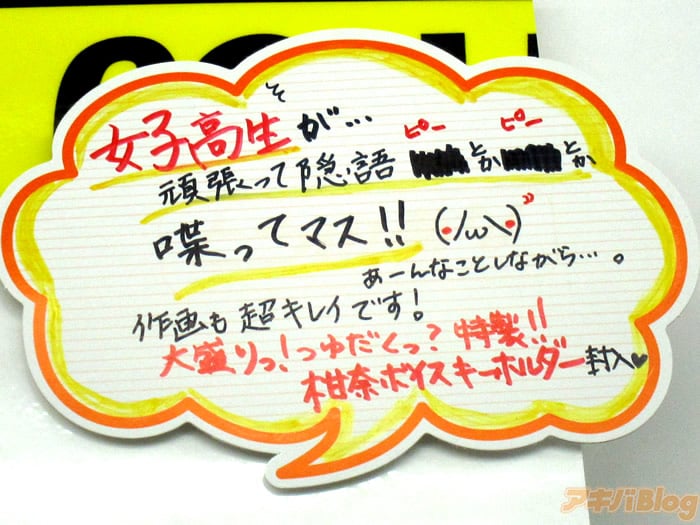 そ
女子高生が…
ピー ピー
頑張って隠語 とか とか
喋ってマス!! (/ω\)”
あーんなことしながら…。
作画も超キレイです!
大盛りっ!つゆだくっ?特製!!
柑奈ボイスキーホルダー封入♥
アキバBlog